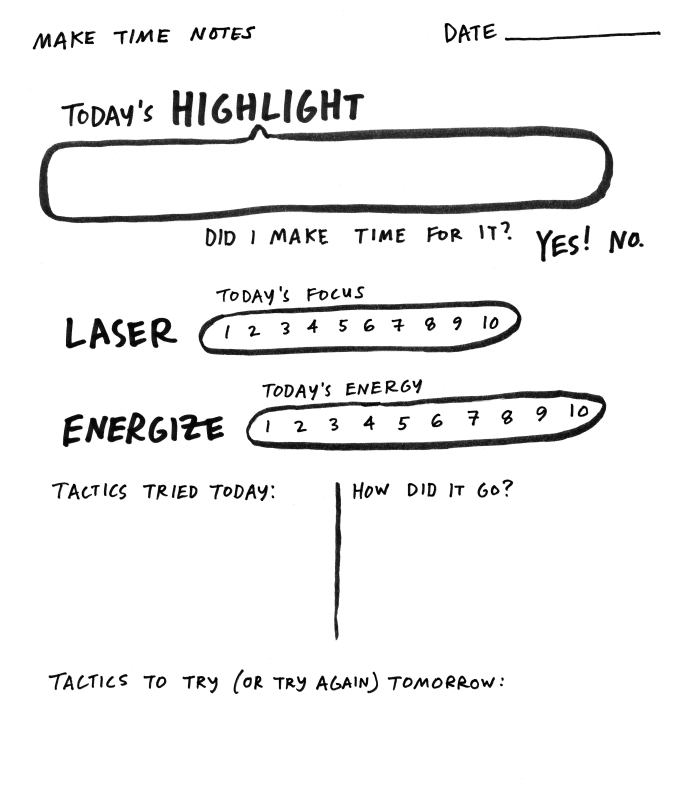 MAKE TIME NOTES DATE
TODAY'S HIGHLIGHT
DID I MAKE TIME FOR IT? YES! NO.
TODAY'S FOCUS
LASER 1 2 3 4 5 6 7 8 9 10
TODAY'S ENERGY
ENERGIZE 1 2 3 4 5 6 7 8 9 10
TACTICS TRIED TODAY: HOW DID IT GO?
TACTICS TO TRY (OR TRY AGAIN) TOMORROW: